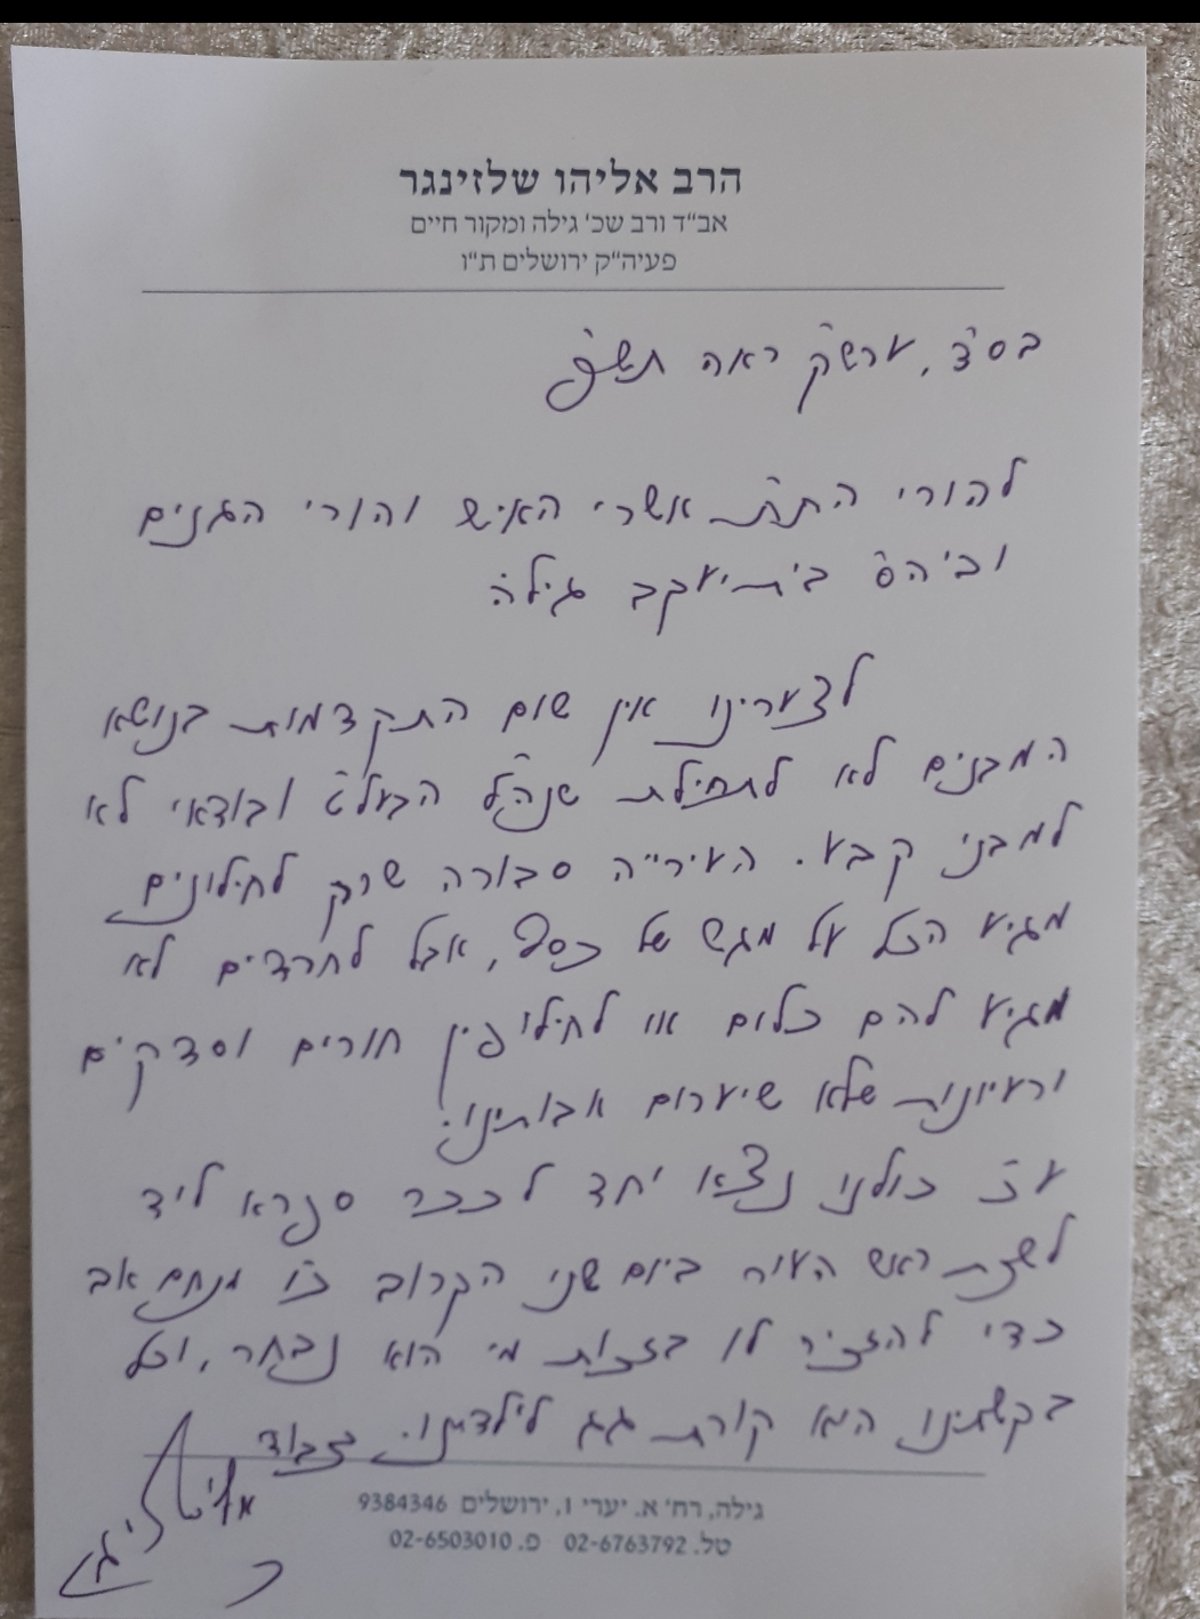 הרב אליהו שלזינגר
אב"ד ורב שכ' גילה ומקור חיים
פעיה"ק ירושלים ת"ו
בס"ד, ערש"ק ראה תש"פ
להורי הת"ת אשרי האיש והורי הגנים
וביה"ס בית יעקב גילה
לצערינו אין שום התקדמות בנושא
המבנים לא לתחילת שנה"ל הבעל"ט ובודאי לא
למבני קבע. העירי"ה סבורה שרק לחילונים
מגיע הכל על מגש של כסף, אבל לחרדים לא
מגיע להם כלום או לחילופין חורים וסדקים
ורעיונות שלא שיערום אבותינו.
ע"כ כולנו נצא יחד לככר ספרא ליד
לשכת ראש העיר ביום שני הקרוב כ"ז מנחם אב
כדי להזכיר לו בזכות מי הוא נבחר, וכל
בקשתינו היא קורת גג לילדינו. בכבוד
גילה, רח' א. יערי 1, ירושלים 9384346
טל. 02-6763792 פ. 02-6503010